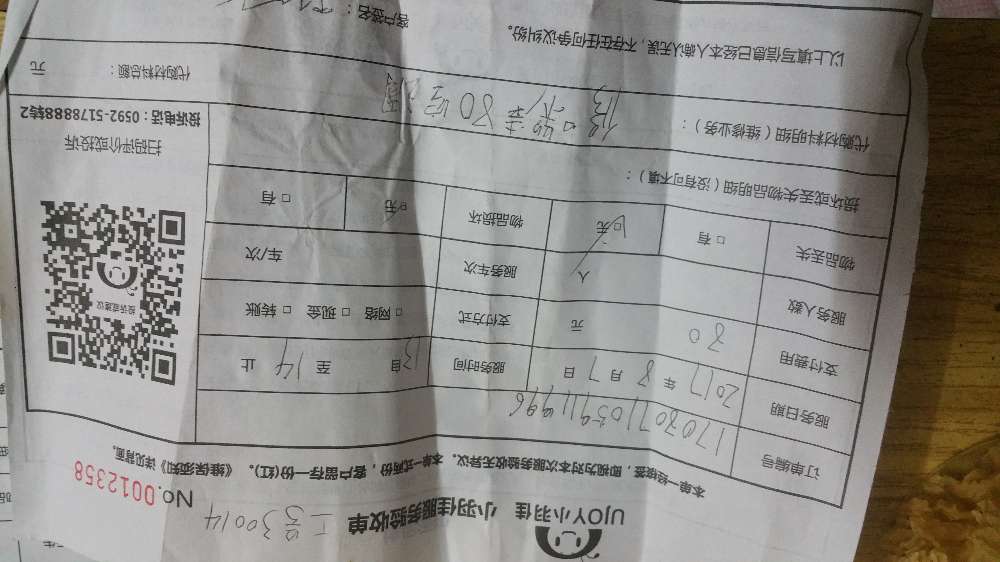 UJOY小羽佳 小羽佳服务验收单 工号30014
No.0012358
本单一经核签，即视为对本次服务验收无异议。本单一式两份，客户留存一份(红)。《维保须知》详见背面。
订单编号 170807105911996
服务日期 2017年8月7日 服务时间 13自 至14止
支付费用 80元 支付方式 □网络 □现金 □转账
服务人数 人 服务车次 车/次
物品丢失 □有 □无 物品损坏 □无 □有
损坏或丢失物品明细（没有可不填）：
代购材料明细（维修业务）：
代购材料总额： 元
以上填写信息已经本人确认无误，不存在任何争议纠纷。
客户签名：
投诉或建议
扫码评价或投诉
投诉电话：0592-5178888转2